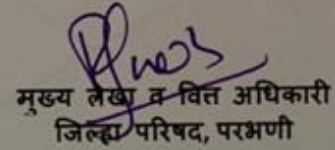 मुख्य लेखा व वित्त अधिकारी
जिल्हा परिषद, परभणी